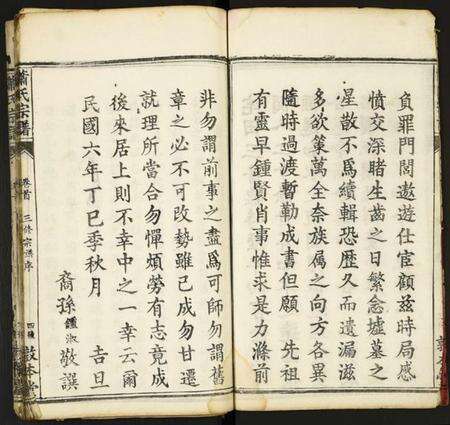 負罪門閭遨遊仕宦顧茲時局感
憤交深睹生齒之日繁念墟墓之
星散不爲續輯恐歷久而遺漏滋
多欲筆萬全奈族属之向方各異
隨時過渡暫勒成書但願 先祖
有靈早鍾賢肖事惟求是力滌前
非勿謂前事之盡爲可師勿謂舊
章之必不可改勢雖已成勿甘遷
就理所當合勿憚煩勞有志竟成
後來居上則不幸中之一幸云爾
民國六年丁巳季秋月 吉旦
裔孫鍾淑敬譔
蕭氏宗譜
卷首 三修宗譜序
四陵 敦本堂